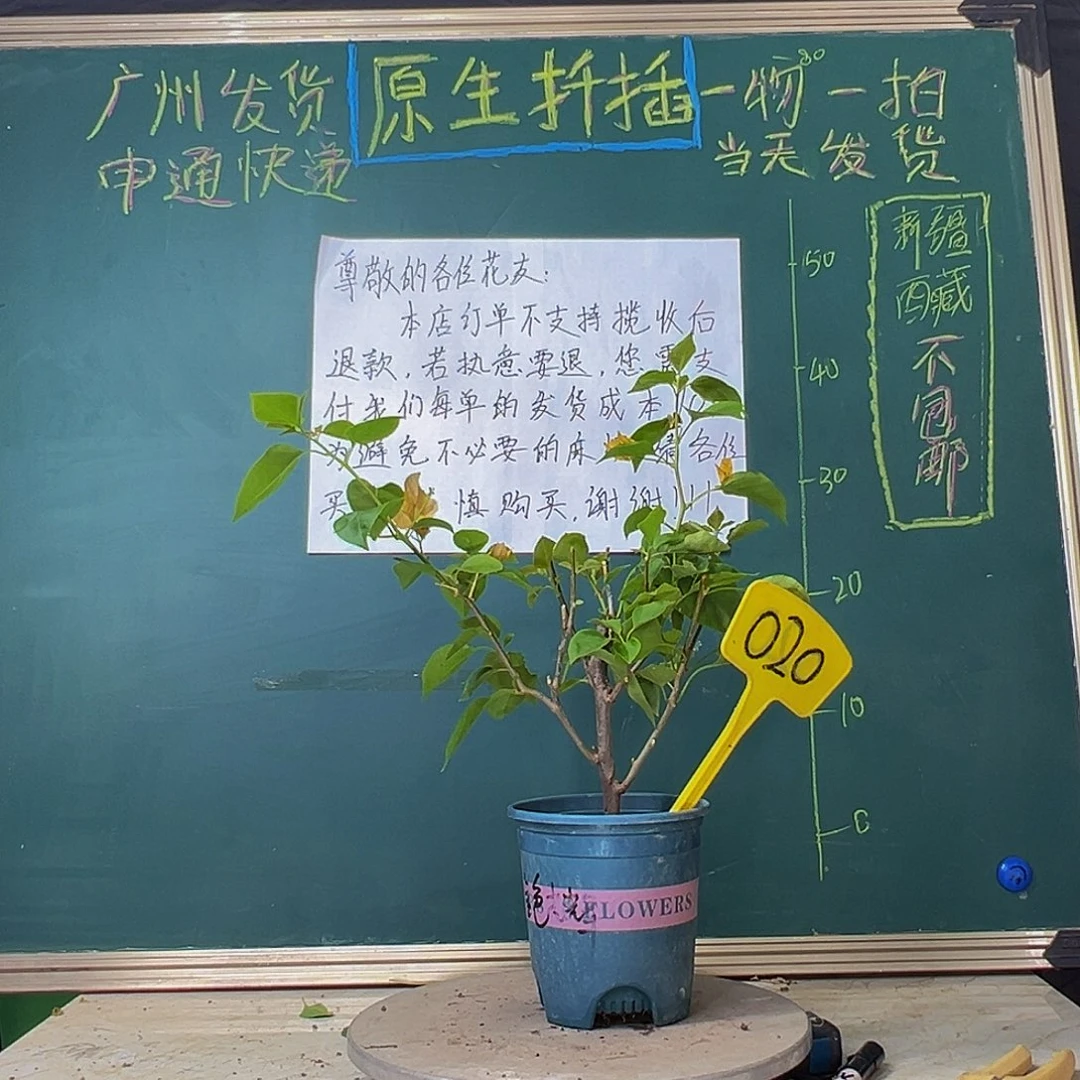 广州发货
原生扦插
一物一拍
申通快递
当天发货
新疆
西藏
不
包
邮
尊敬的各位花友:
本店订单不支持揽收后
退款,若执意要退,您需支
付我们每单的发货成本
为避免不必要的麻 请各位
买 慎购买,谢谢!!!
50
40
30
20
10
0
020
色光
FLOWERS